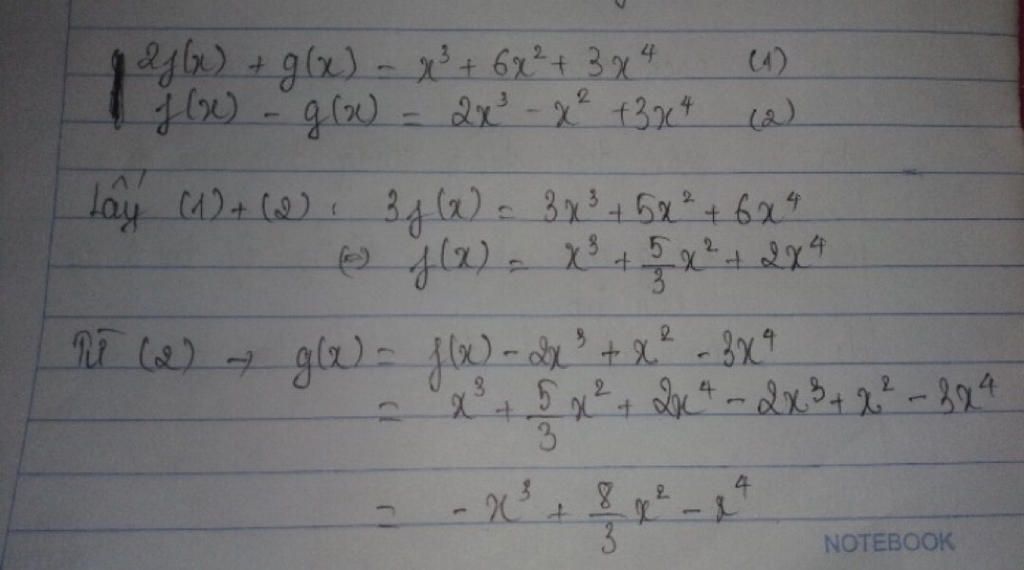 2f(x) + g(x) = x³ + 6x² + 3x⁴ (1)
f(x) - g(x) = 2x³ - x² + 3x⁴ (2)
Lấy (1) + (2) : 3f(x) = 3x³ + 5x² + 6x⁴
(=) f(x) = x³ + 5/3 x² + 2x⁴
Từ (2) → g(x) = f(x) - 2x³ + x² - 3x⁴
= x³ + 5/3 x² + 2x⁴ - 2x³ + x² - 3x⁴
= - x³ + 8/3 x² - x⁴
NOTEBOOK